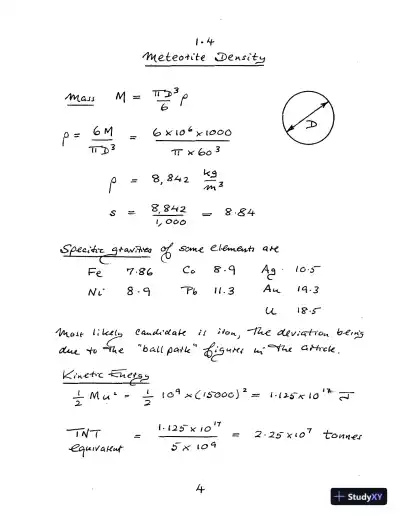 1.4
Meteorite Density
Mass M = πD³/6 ρ
D
ρ = 6M/πD³ = 6×10⁶×1000/π×60³
ρ = 8,842 kg/m³
s = 8,842/1,000 = 8.84
Specific gravities of some elements are
Fe 7.86 Co 8.9 Ag. 10.5
Ni 8.9 Pb 11.3 Au 19.3
U 18.5
Most likely candidate is iron, the deviation being
due to the "ball park" figures in the article.
Kinetic Energy
1/2 Mu² = 1/2 10⁹ × (15000)² = 1.125×10¹⁷ J
TNT equivalent = 1.125×10¹⁷/5×10⁹ = 2.25×10⁷ tonnes
4
StudyXY